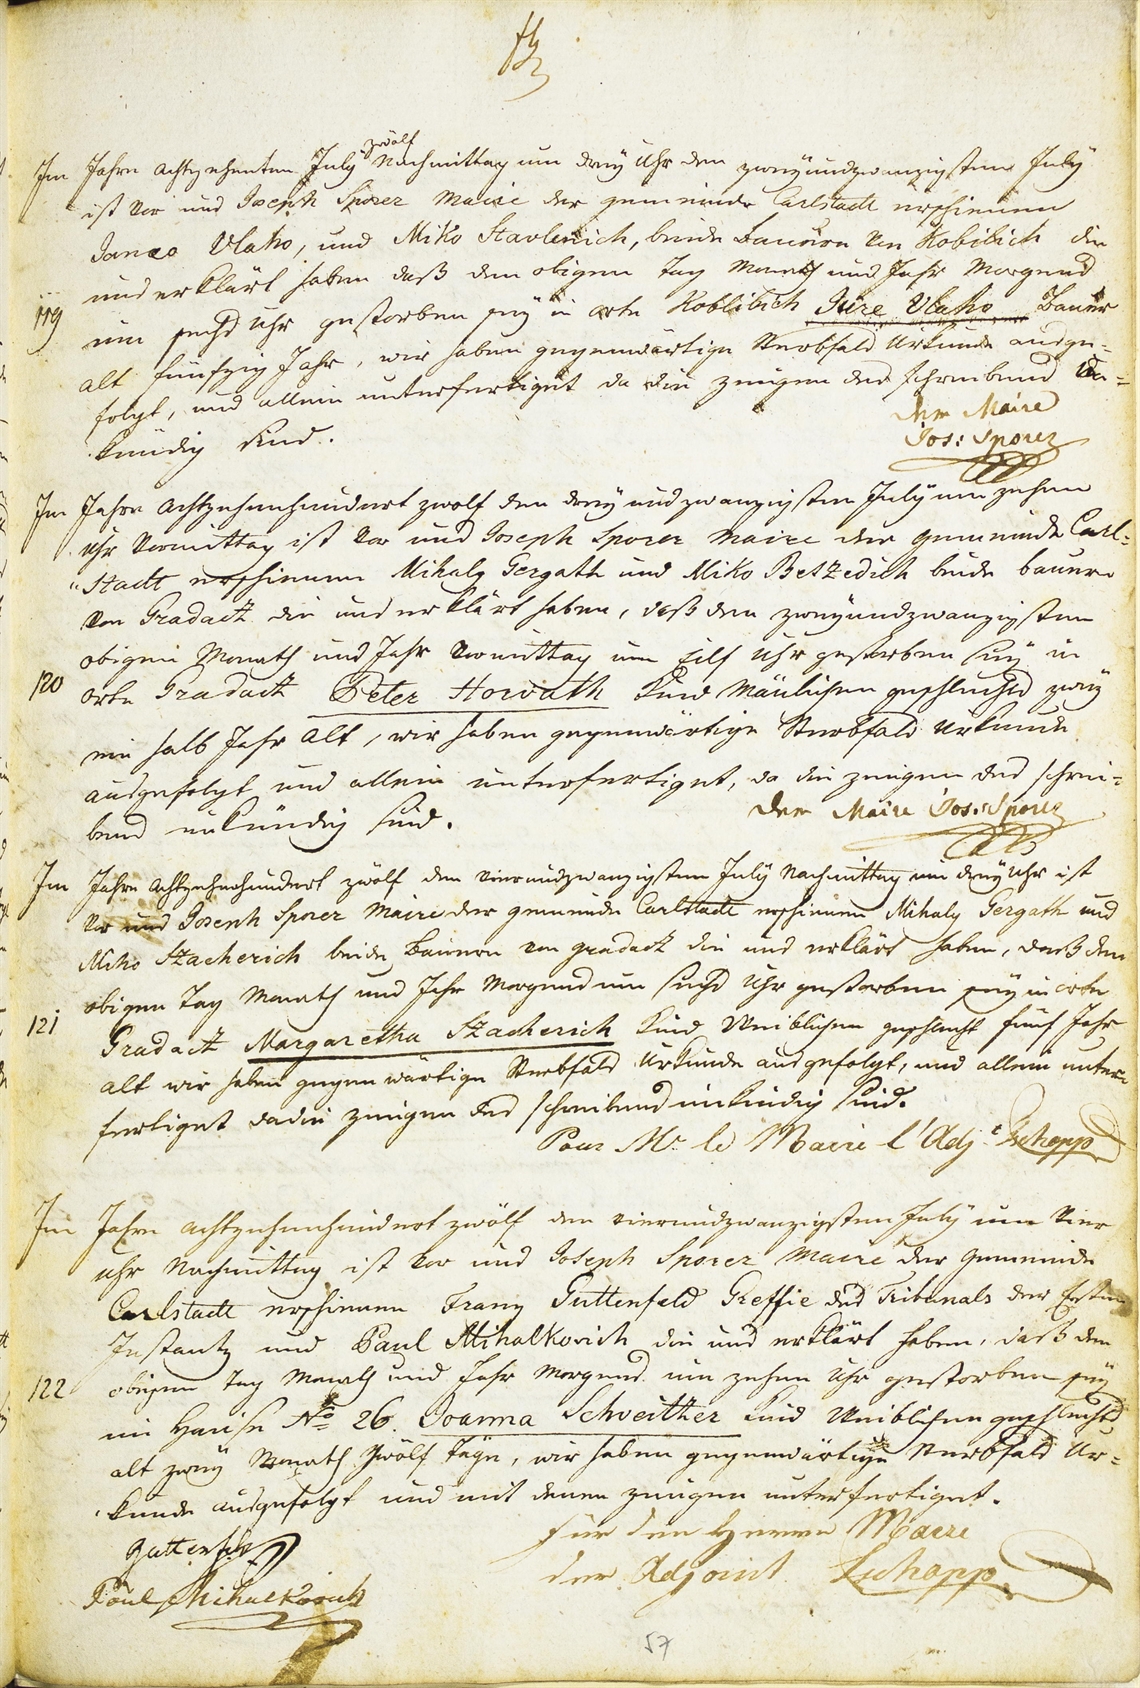 zwölf
Im Jahre achtzehenten July Nachmittag um drey Uhr den zweyundzwanzigsten July
ist vor uns Joseph Sporer Maire der gemeinde Carlstadt erschienen
Vlaho, und Miko Stavlenich, beide Bauern von Kobilich die
uns erklärt haben daß den obigen Tag Monath und Jahr Morgens
119
um sechs Uhr gestorben sey in orte Koblibich Jure Vlaho Bauer
alt fünfzig Jahr, wir haben gegenwärtige Sterbfals Urkunde ausge=
folgt, und allein unterfertiget da die zeugen des schreibens un=
kündig sind.
der Maire
Jos: Sporer
Im Jahre achtzehenhundert zwölf den drey und zwanzigsten July um zehen
Uhr Vormittag ist vor uns Joseph Sporer Maire der gemeinde Carl=
Stadt erschienen Mihaly Gergath und Miko Betzedich beide bauern
von Gradatz die uns erklärt haben, daß den zweyundzwanzigsten
obigen Monath und Jahr Vormittag um Eilf Uhr gestorben sey in
120
orte Gradatz Peter Horvath Kind Mänlichen geschlechts zwey
ein halb Jahr alt, wir haben gegenwärtige Sterbfals Urkunde
ausgefolgt und allein unterfertiget, da die zeugen des schrei=
bens unkündig sind.
der Maire Jos: Sporer
Im Jahre achtzehenhundert zwölf den vierundzwanzigsten July Nachmittag um drey Uhr ist
vor uns Joseph Sporer Maire der gemeinde Carlstadt erschienen Mihaly Gergath und
Miko Stacherich beide Bauern von gradatz die uns erklärt haben, daß den
obigen Tag Monath und Jahr Morgens um sechs Uhr gestorben sey in orte
121
Gradatz Margaretha Stacherich Kind Weiblichen geschlecht fünf Jahr
alt wir haben gegenwärtige Sterbfals Urkunde ausgefolgt, und allein unter=
fertiget da die zeugen des schreibens unkündig sind.
Pour Mr. le Maire l'Adjt
Im Jahre achtzehenhundert zwölf den vierundzwanzigsten July um vier
Uhr Nachmittag ist vor uns Joseph Sporer Maire der gemeinde
Carlstadt erschienen Franz Guttenfeld Greffie des Tribunals der Ersten
Instantz und Paul Mihalkovich die uns erklärt haben, daß den
122
obigen Tag Monath und Jahr Morgens um zehen Uhr gestorben sey
im Hause No 26 Joanna Schweitzer Kind Weiblichen geschlechts
alt zwey Monath zwölf Täge, wir haben gegenwärtige Sterbfals Ur=
kunde ausgefolgt und mit denen zeugen unterfertiget.
Guttenfeld
für den Herrn Maire
der Adjoint
Paul Mihalkovich
57